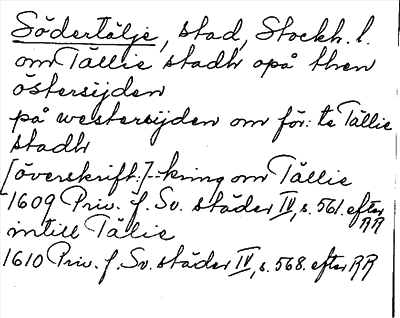 Södertälje, stad, Stockh. l.
om Tällie stadh opå then
östersijden
på westersijden om för: te Tällie
stadh
[överskrift:]-kring om Tällie
1609 Priv. f. Sv. städer IV, s. 561. efter RR
intill Tälie
1610 Priv. f. Sv. städer IV, s. 568. efter RR